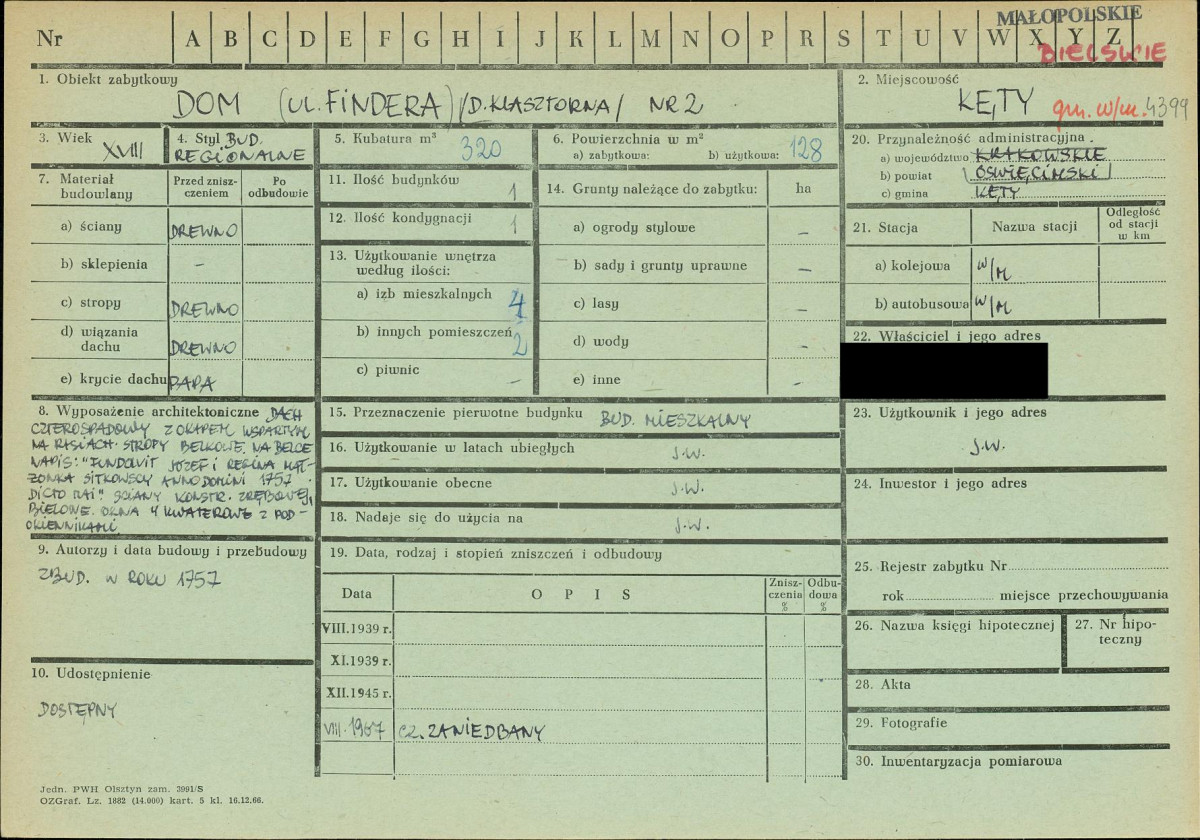 MAŁOPOLSKIE
Nr A B C D E F G H I J K L M N O P R S T U V W X Y Z
BIELSKIE
1. Obiekt zabytkowy
DOM (UL. FINDERA) /D. KLASZTORNA/ NR 2
2. Miejscowość
KĘTY gm. w/m. 4399
3. Wiek
XVIII
4. Styl BUD.
REGIONALNE
5. Kubatura m³ 320
6. Powierzchnia w m²
a) zabytkowa: b) użytkowa: 128
7. Materiał budowlany
Przed zniszczeniem
Po odbudowie
a) ściany DREWNO
b) sklepienia –
c) stropy DREWNO
d) wiązania dachu DREWNO
e) krycie dachu PAPA
8. Wyposażenie architektoniczne DACH
CZTEROSPADOWY Z OKAPEM WSPARTYM
NA RYSIACH. STROPY BELKOWE. NA BELCE
NAPIS: "FUNDOWIT JÓZEF i REGINA MAŁ-
ZONKA SITKOWSCY ANNO DOMINI 1757
DICTO MAI". ŚCIANY KONSTR. ZRĘBOWEJ,
BIELONE. OKNA 4 KWATEROWE Z POD-
OKIENNIKAMI
9. Autorzy i data budowy i przebudowy
ZBUD. W ROKU 1757
10. Udostępnienie
DOSTĘPNY
11. Ilość budynków 1
12. Ilość kondygnacji 1
13. Użytkowanie wnętrza
według ilości:
a) izb mieszkalnych 4
b) innych pomieszczeń 2
c) piwnic –
14. Grunty należące do zabytku: ha
a) ogrody stylowe –
b) sady i grunty uprawne –
c) lasy –
d) wody –
e) inne –
15. Przeznaczenie pierwotne budynku BUD. MIESZKALNY
16. Użytkowanie w latach ubiegłych J.W.
17. Użytkowanie obecne J.W.
18. Nadaje się do użycia na J.W.
19. Data, rodzaj i stopień zniszczeń i odbudowy
Data O P I S Zniszczenia % Odbudowa %
VIII.1939 r.
XI.1939 r.
XII.1945 r.
VIII.1967 CZ. ZANIEDBANY
20. Przynależność administracyjna
a) województwo KRAKOWSKIE
b) powiat OŚWIĘCIMSKI
c) gmina KĘTY
21. Stacja Nazwa stacji Odległość od stacji w km
a) kolejowa W/M
b) autobusowa W/M
22. Właściciel i jego adres
23. Użytkownik i jego adres
J.W.
24. Inwestor i jego adres
25. Rejestr zabytku Nr
rok miejsce przechowywania
26. Nazwa księgi hipotecznej
27. Nr hipoteczny
28. Akta
29. Fotografie
30. Inwentaryzacja pomiarowa
Jedn. PWH Olsztyn zam. 3991/S
OZGraf. Lz. 1882 (14.000) kart. 5 kl. 16.12.66.